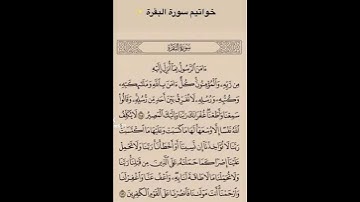 خواتيم سورة البقرة
سورة البقرة
ءَامَنَ ٱلرَّسُولُ بِمَآ أُنزِلَ إِلَيْهِ
مِن رَّبِّهِۦ وَٱلْمُؤْمِنُونَ كُلٌّ ءَامَنَ بِٱللَّهِ وَمَلَٰٓئِكَتِهِۦ
وَكُتُبِهِۦ وَرُسُلِهِۦ لَا نُفَرِّقُ بَيْنَ أَحَدٍ مِّن رُّسُلِهِۦ وَقَالُوا۟
سَمِعْنَا وَأَطَعْنَا غُفْرَانَكَ رَبَّنَا وَإِلَيْكَ ٱلْمَصِيرُ ٢٨٥ لَا يُكَلِّفُ
ٱللَّهُ نَفْسًا إِلَّا وُسْعَهَا لَهَا مَا كَسَبَتْ وَعَلَيْهَا مَا ٱكْتَسَبَتْ
رَبَّنَا لَا تُؤَاخِذْنَآ إِن نَّسِينَآ أَوْ أَخْطَأْنَا رَبَّنَا وَلَا تَحْمِلْ
عَلَيْنَآ إِصْرًا كَمَا حَمَلْتَهُۥ عَلَى ٱلَّذِينَ مِن قَبْلِنَا رَبَّنَا
وَلَا تُحَمِّلْنَا مَا لَا طَاقَةَ لَنَا بِهِۦ وَٱعْفُ عَنَّا وَٱغْفِرْ لَنَا
وَٱرْحَمْنَآ أَنتَ مَوْلَىٰنَا فَٱنصُرْنَا عَلَى ٱلْقَوْمِ ٱلْكَٰفِرِينَ ٢٨٦